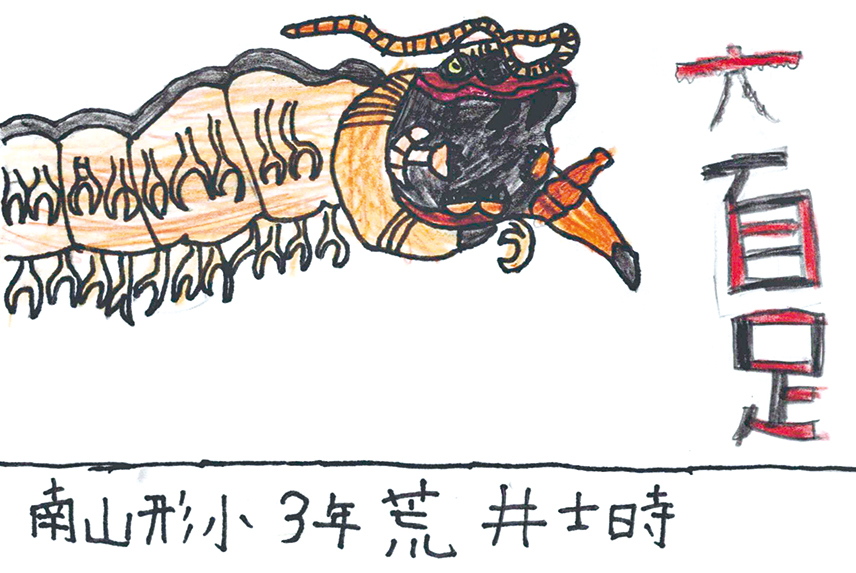 大百足
南山形小 3年 荒井士時